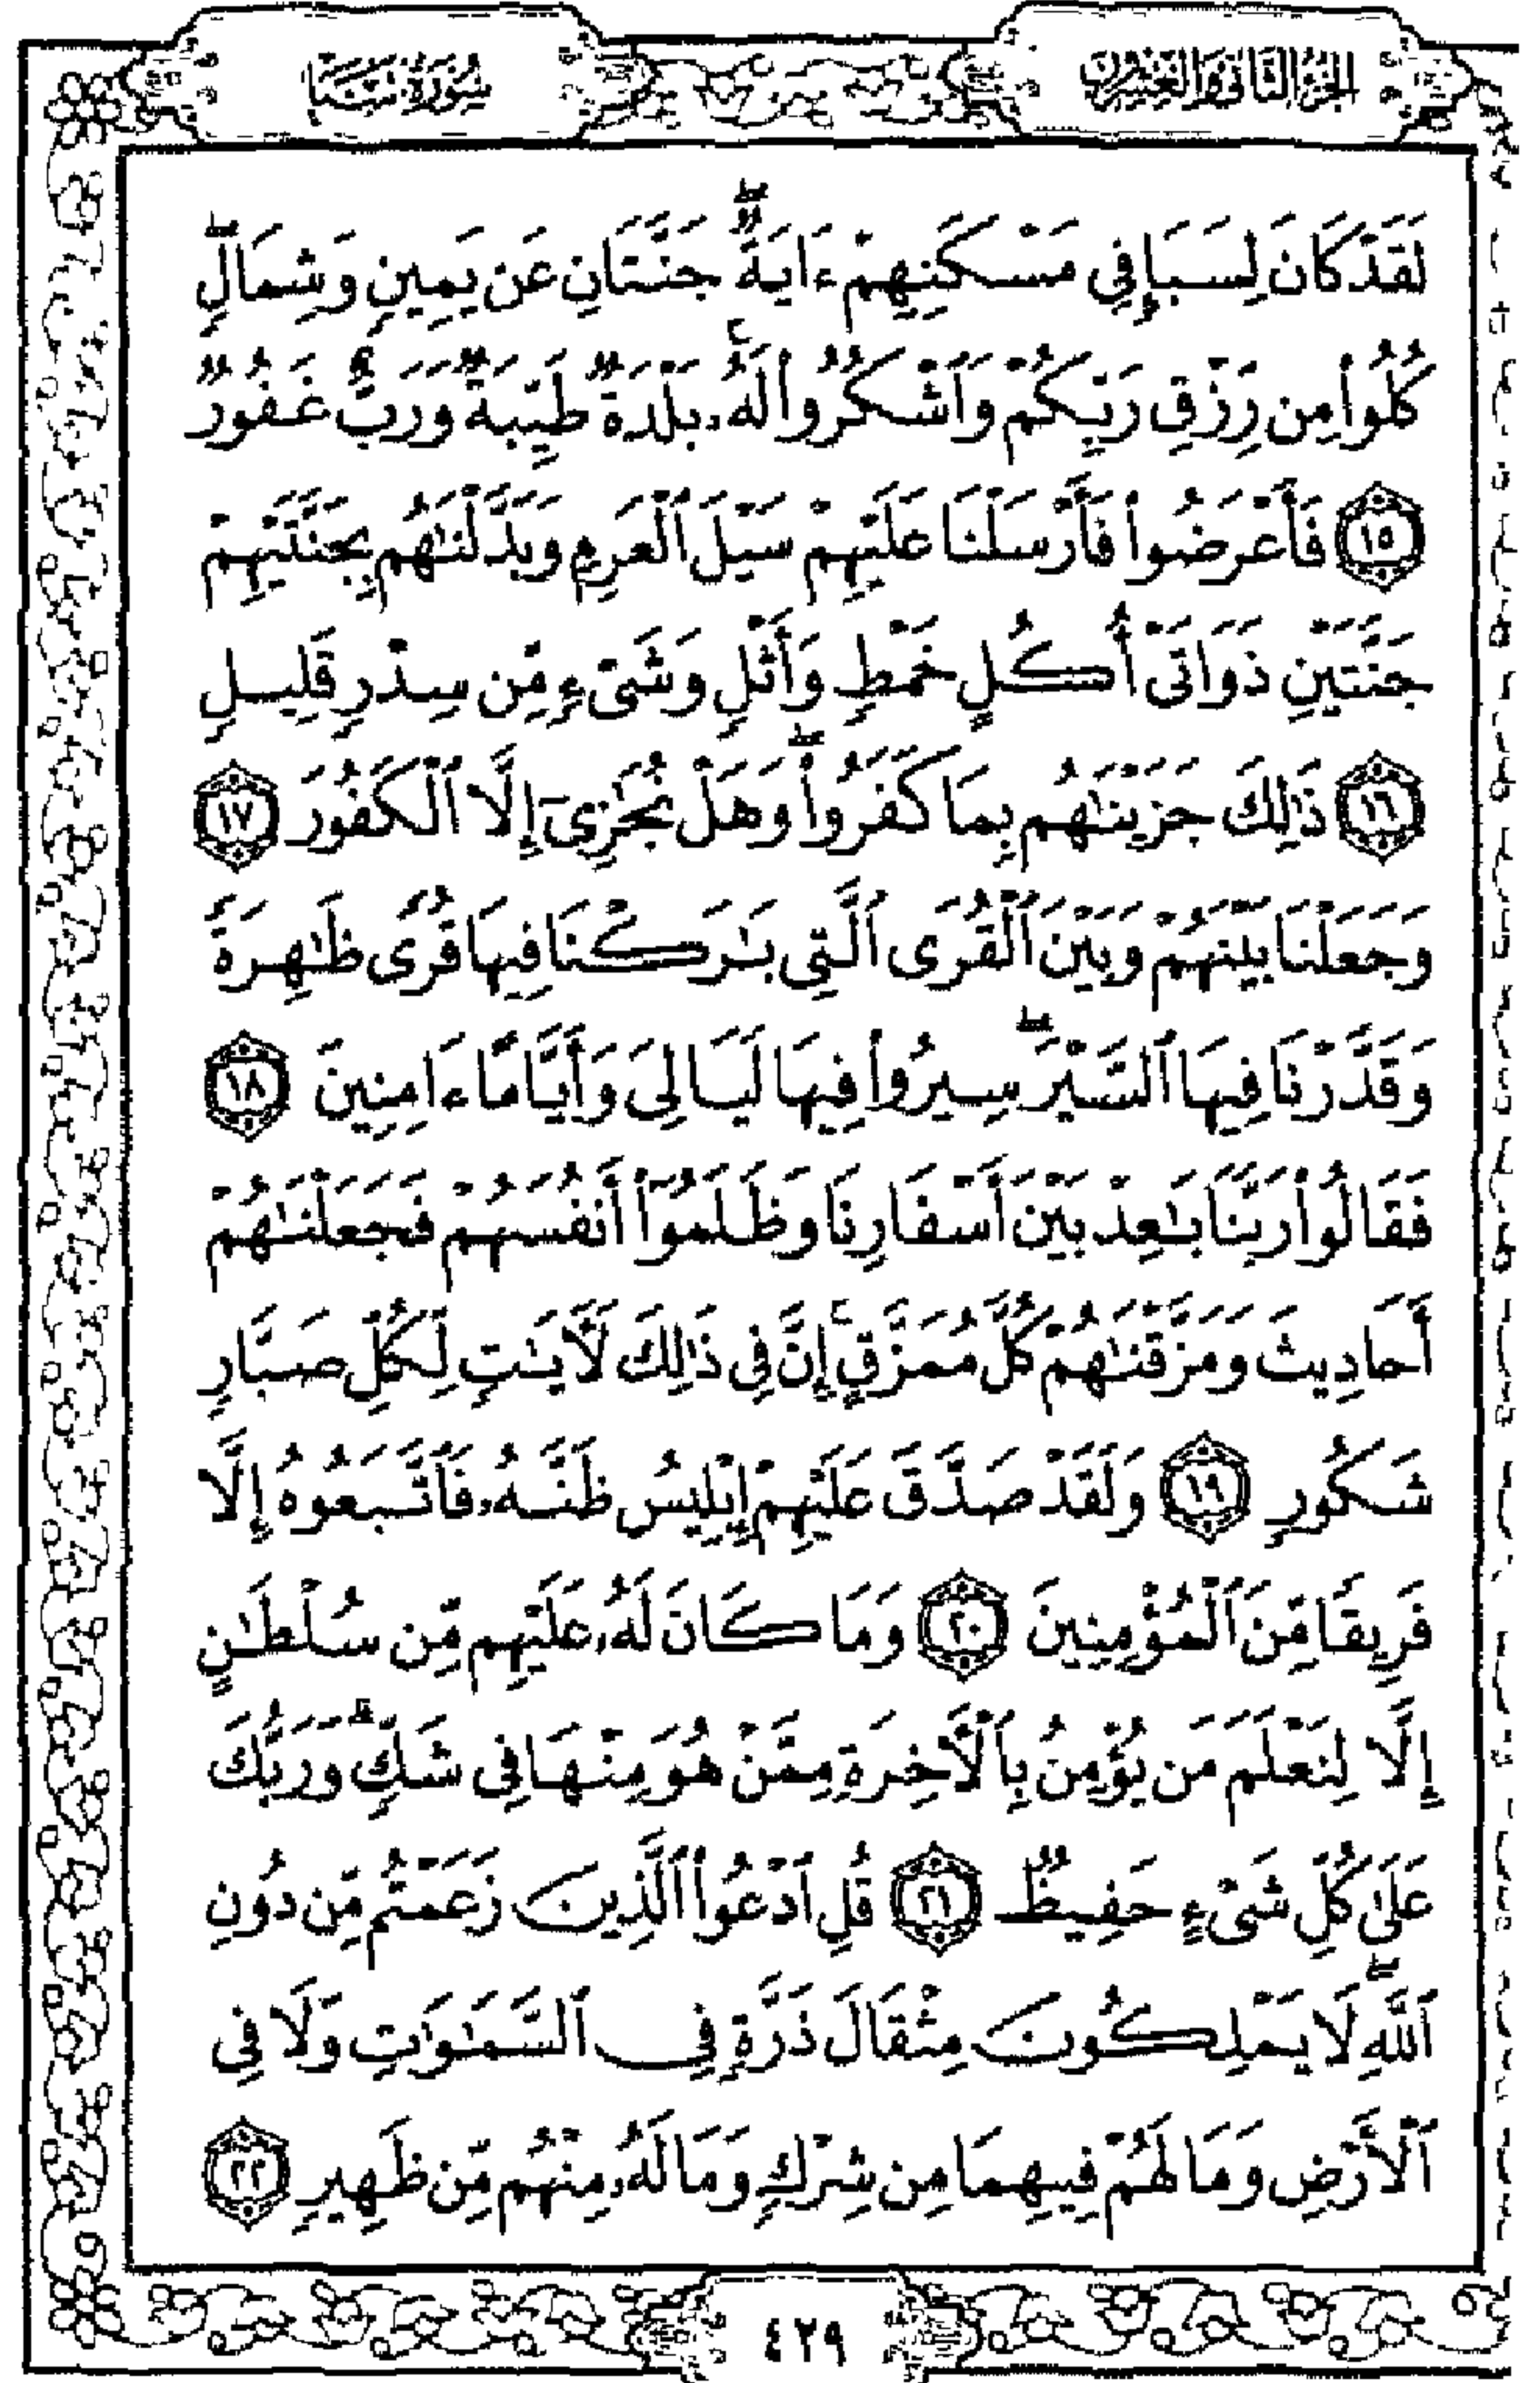 الجزء الثاني والعشرون
سورة سبأ
لَقَدْ كَانَ لِسَبَإٍ فِي مَسْكَنِهِمْ ءَايَةٌ ۖ جَنَّتَانِ عَن يَمِينٍ وَشِمَالٍ ۖ
كُلُوا۟ مِن رِّزْقِ رَبِّكُمْ وَٱشْكُرُوا۟ لَهُۥ ۚ بَلْدَةٌ طَيِّبَةٌ وَرَبٌّ غَفُورٌ
﴿١٥﴾ فَأَعْرَضُوا۟ فَأَرْسَلْنَا عَلَيْهِمْ سَيْلَ ٱلْعَرِمِ وَبَدَّلْنَٰهُم بِجَنَّتَيْهِمْ
جَنَّتَيْنِ ذَوَاتَىْ أُكُلٍ خَمْطٍ وَأَثْلٍ وَشَىْءٍ مِّن سِدْرٍ قَلِيلٍ
﴿١٦﴾ ذَٰلِكَ جَزَيْنَٰهُم بِمَا كَفَرُوا۟ ۖ وَهَلْ نُجَٰزِىٓ إِلَّا ٱلْكَفُورَ ﴿١٧﴾
وَجَعَلْنَا بَيْنَهُمْ وَبَيْنَ ٱلْقُرَى ٱلَّتِى بَٰرَكْنَا فِيهَا قُرًى ظَٰهِرَةً
وَقَدَّرْنَا فِيهَا ٱلسَّيْرَ ۖ سِيرُوا۟ فِيهَا لَيَالِىَ وَأَيَّامًا ءَامِنِينَ ﴿١٨﴾
فَقَالُوا۟ رَبَّنَا بَٰعِدْ بَيْنَ أَسْفَارِنَا وَظَلَمُوٓا۟ أَنفُسَهُمْ فَجَعَلْنَٰهُمْ
أَحَادِيثَ وَمَزَّقْنَٰهُمْ كُلَّ مُمَزَّقٍ ۚ إِنَّ فِى ذَٰلِكَ لَءَايَٰتٍ لِّكُلِّ صَبَّارٍ
شَكُورٍ ﴿١٩﴾ وَلَقَدْ صَدَّقَ عَلَيْهِمْ إِبْلِيسُ ظَنَّهُۥ فَٱتَّبَعُوهُ إِلَّا
فَرِيقًا مِّنَ ٱلْمُؤْمِنِينَ ﴿٢٠﴾ وَمَا كَانَ لَهُۥ عَلَيْهِم مِّن سُلْطَٰنٍ
إِلَّا لِنَعْلَمَ مَن يُؤْمِنُ بِٱلْءَاخِرَةِ مِمَّنْ هُوَ مِنْهَا فِى شَكٍّ ۗ وَرَبُّكَ
عَلَىٰ كُلِّ شَىْءٍ حَفِيظٌ ﴿٢١﴾ قُلِ ٱدْعُوا۟ ٱلَّذِينَ زَعَمْتُم مِّن دُونِ
ٱللَّهِ ۖ لَا يَمْلِكُونَ مِثْقَالَ ذَرَّةٍ فِى ٱلسَّمَٰوَٰتِ وَلَا فِى
ٱلْأَرْضِ وَمَا لَهُمْ فِيهِمَا مِن شِرْكٍ وَمَا لَهُۥ مِنْهُم مِّن ظَهِيرٍ ﴿٢٢﴾
٤٢٩